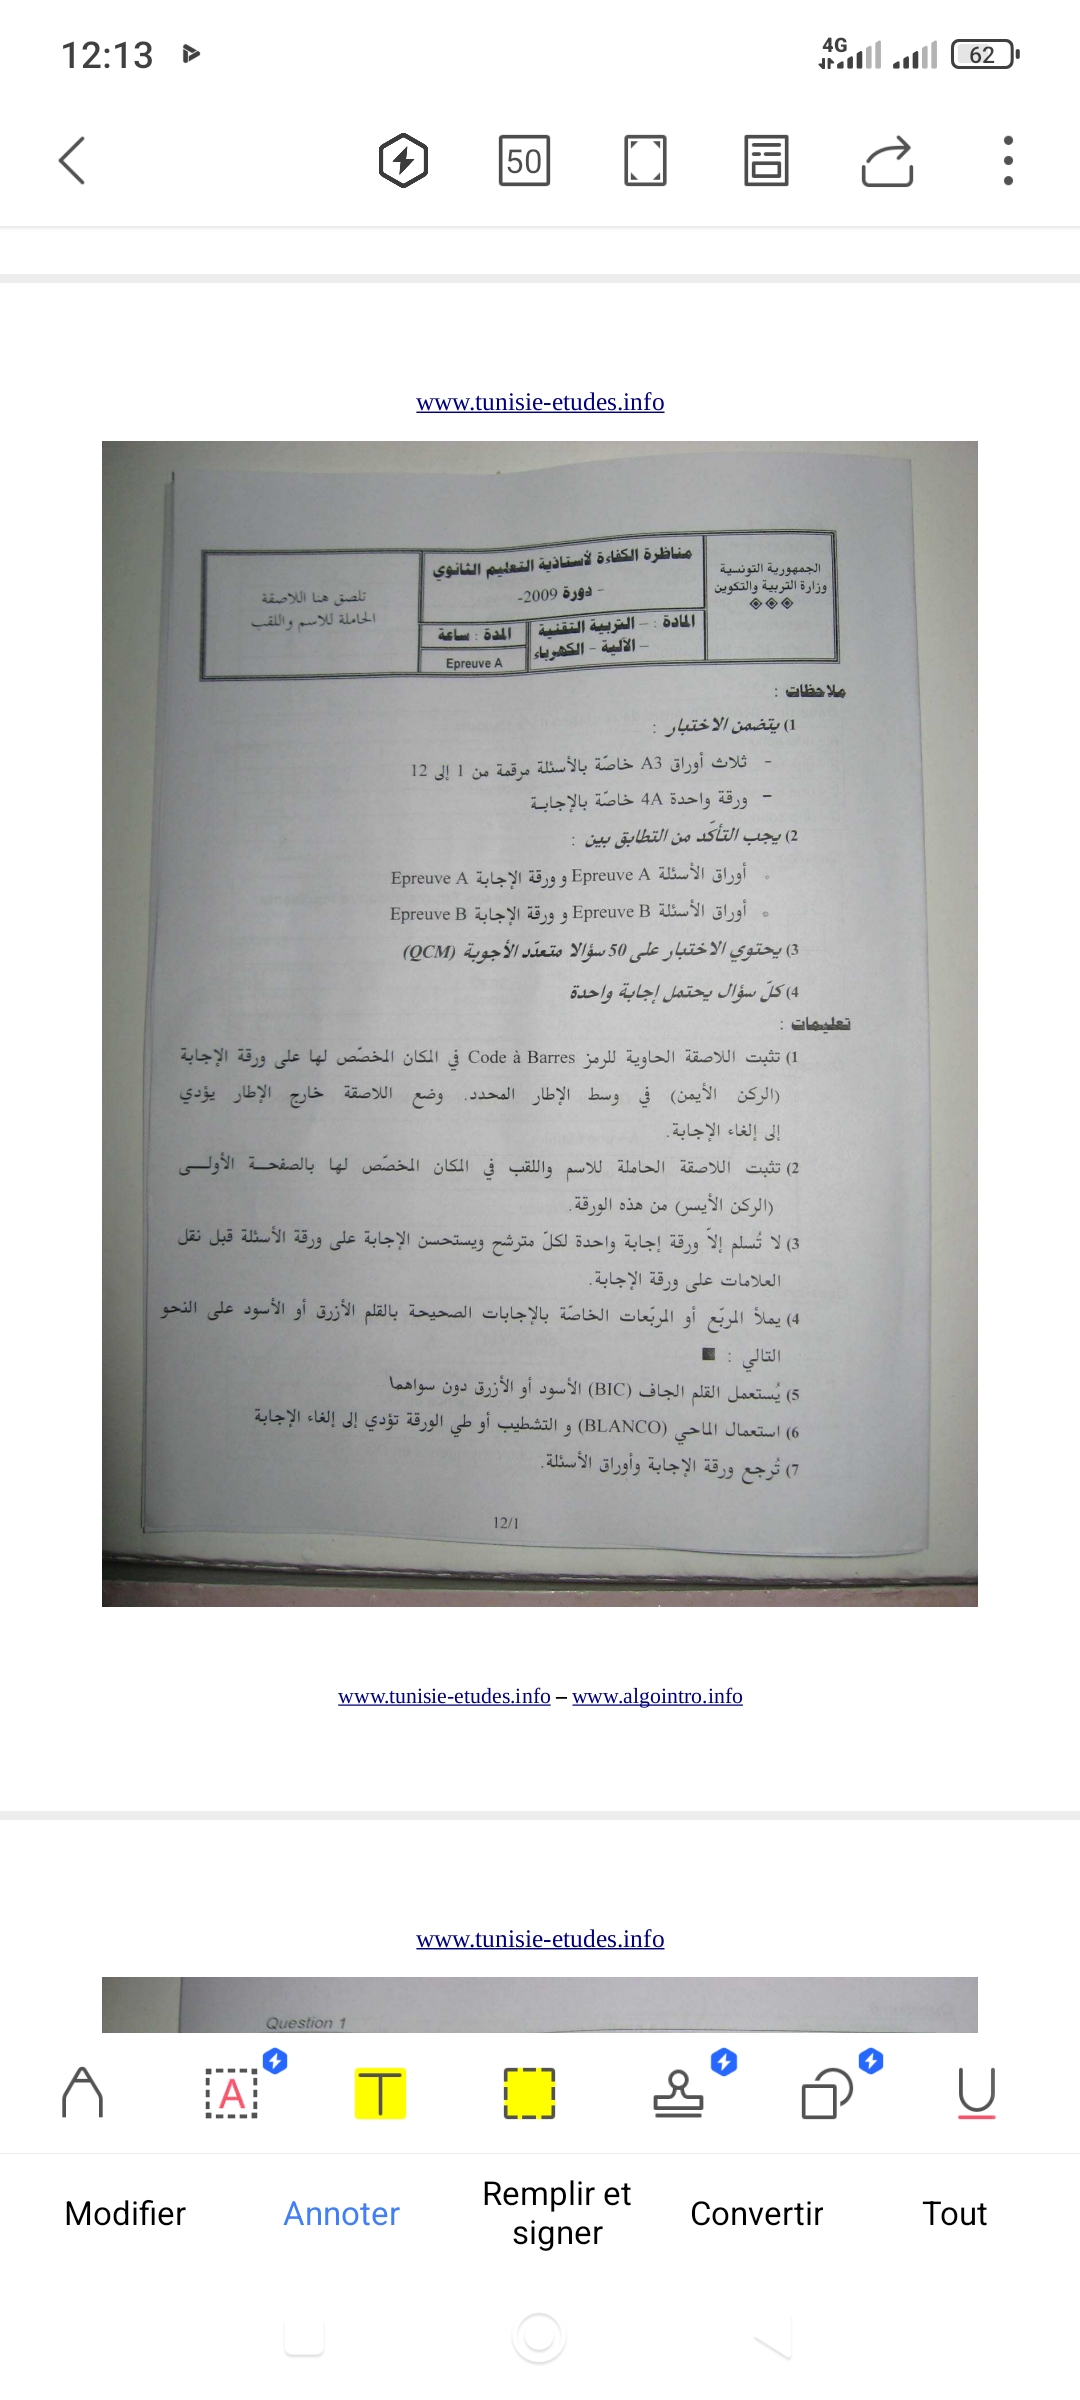 12:13
4G
62
50
www.tunisie-etudes.info
الجمهورية التونسية
وزارة التربية والتكوين
مناظرة الكفاءة لأستاذية التعليم الثانوي
- دورة 2009-
المادة : – التربية التقنية
– الآلية – الكهرباء
المدة : ساعة
Epreuve A
تلصق هنا اللاصقة
الحاملة للاسم واللقب
ملاحظات :
1) يتضمن الاختبار :
- ثلاث أوراق A3 خاصّة بالأسئلة مرقمة من 1 إلى 12
– ورقة واحدة 4A خاصّة بالإجابة
2) يجب التأكّد من التطابق بين :
• أوراق الأسئلة Epreuve A و ورقة الإجابة Epreuve A
• أوراق الأسئلة Epreuve B و ورقة الإجابة Epreuve B
3) يحتوي الاختبار على 50 سؤالا متعدّد الأجوبة (QCM)
4) كلّ سؤال يحتمل إجابة واحدة
تعليمات :
1) تثبت اللاصقة الحاوية للرمز Code à Barres في المكان المخصّص لها على ورقة الإجابة
(الركن الأيمن) في وسط الإطار المحدد. وضع اللاصقة خارج الإطار يؤدي
إلى إلغاء الإجابة.
2) تثبت اللاصقة الحاملة للاسم واللقب في المكان المخصّص لها بالصفحة الأولى
(الركن الأيسر) من هذه الورقة.
3) لا تُسلم إلاّ ورقة إجابة واحدة لكلّ مترشح ويستحسن الإجابة على ورقة الأسئلة قبل نقل
العلامات على ورقة الإجابة.
4) يملأ المربّع أو المربّعات الخاصّة بالإجابات الصحيحة بالقلم الأزرق أو الأسود على النحو
التالي : ■
5) يُستعمل القلم الجاف (BIC) الأسود أو الأزرق دون سواهما
6) استعمال الماحي (BLANCO) و التشطيب أو طي الورقة تؤدي إلى إلغاء الإجابة
7) تُرجع ورقة الإجابة وأوراق الأسئلة.
12/1
www.tunisie-etudes.info – www.algointro.info
www.tunisie-etudes.info
Question 1
A
T
U
Modifier
Annoter
Remplir et
signer
Convertir
Tout